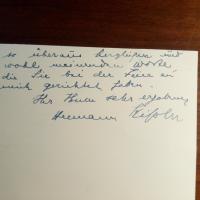 so überaus herzlichen und
wohlmeinenden Worte
die Sie bei der Feier an
mich gerichtet haben.
Ihr Ihnen sehr ergebener
Hermann